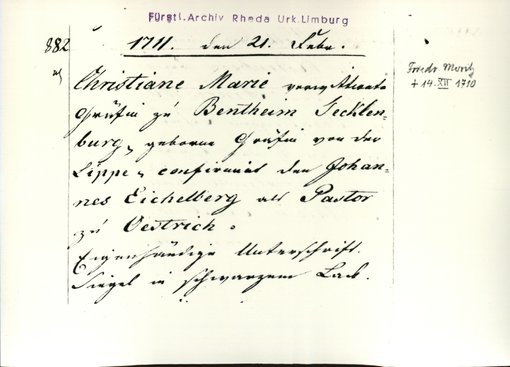 Fürstl. Archiv Rheda Urk. Limburg
882
1711. den 21. Febr.
Christiane Marie verwittwete
Gräfin zu Bentheim Tecklen-
burg, geborne Gräfin von der
Lippe, confirmirt den Johan-
nes Eichelberg als Pastor
zu Oestrich.
Eigenhändige Unterschrift.
Siegel in schwarzem Lack.
Friedr Moritz
+ 14. XII 1710